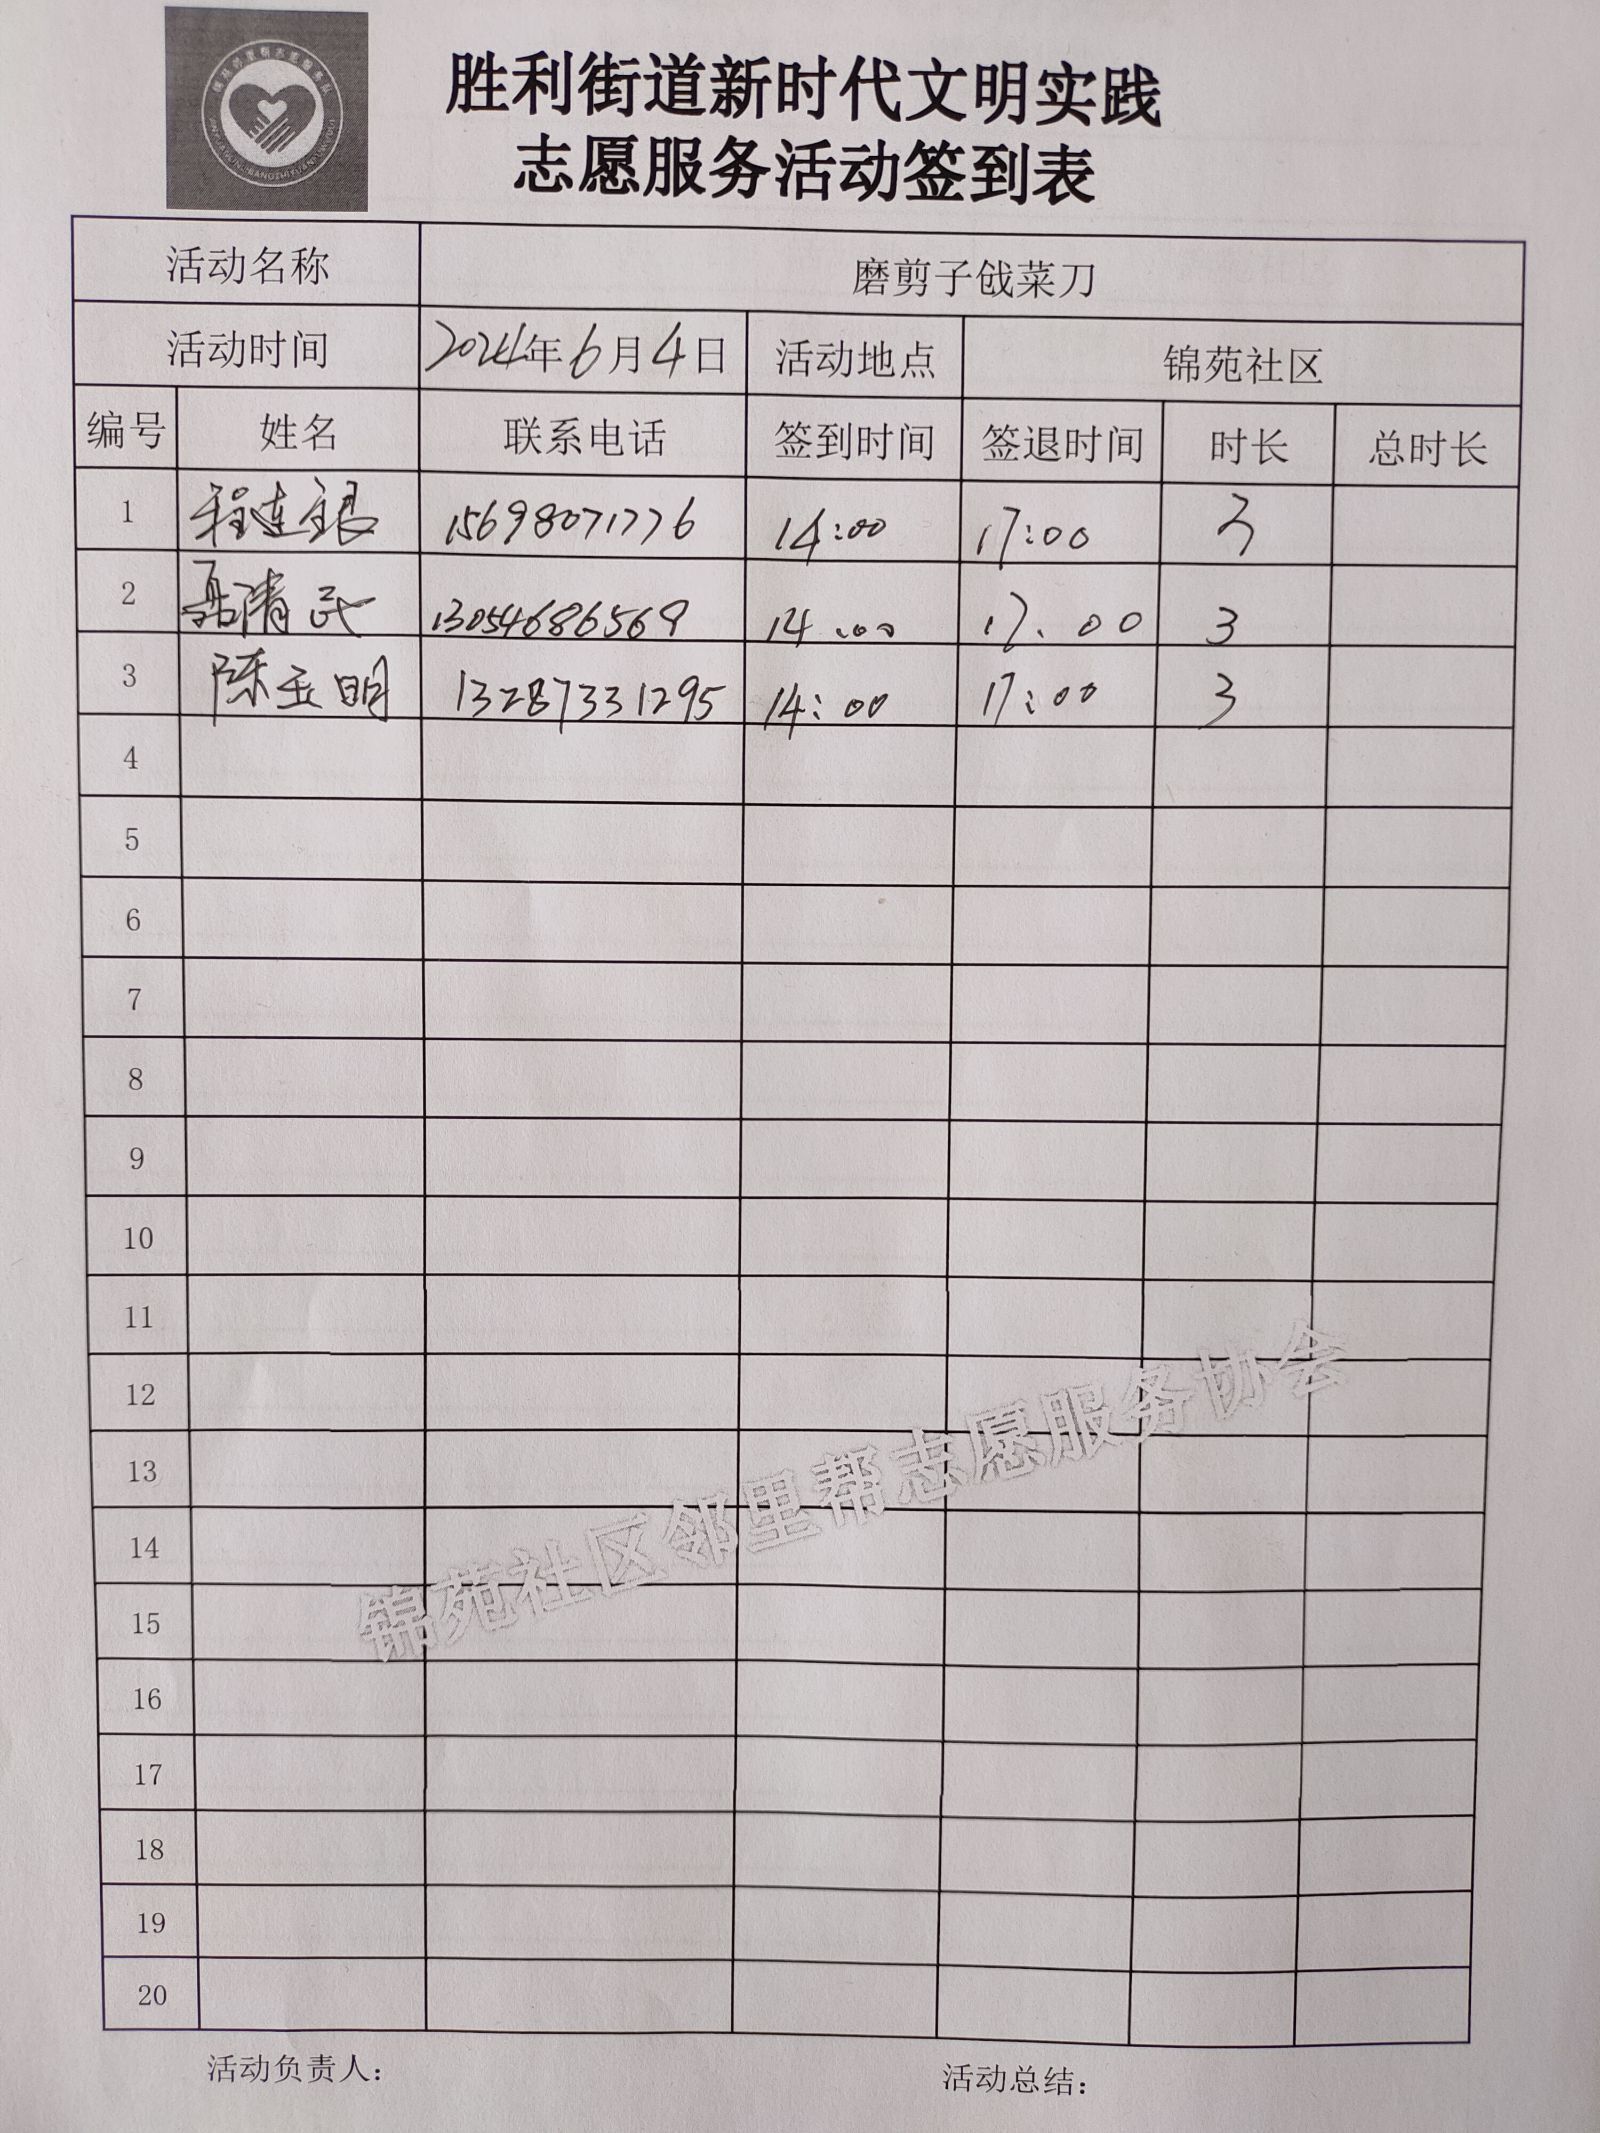 胜利街道新时代文明实践
志愿服务活动签到表
活动名称 磨剪子戗菜刀
活动时间 2024年6月4日 活动地点 锦苑社区
编号 姓名 联系电话 签到时间 签退时间 时长 总时长
1 程连银 15698071776 14:00 17:00 3
2 聂清民 13054686569 14:00 17:00 3
3 陈玉明 13287331295 14:00 17:00 3
4
5
6
7
8
9
10
11
12
13
14
15
16
17
18
19
20
锦苑社区邻里帮志愿服务协会
活动负责人： 活动总结：